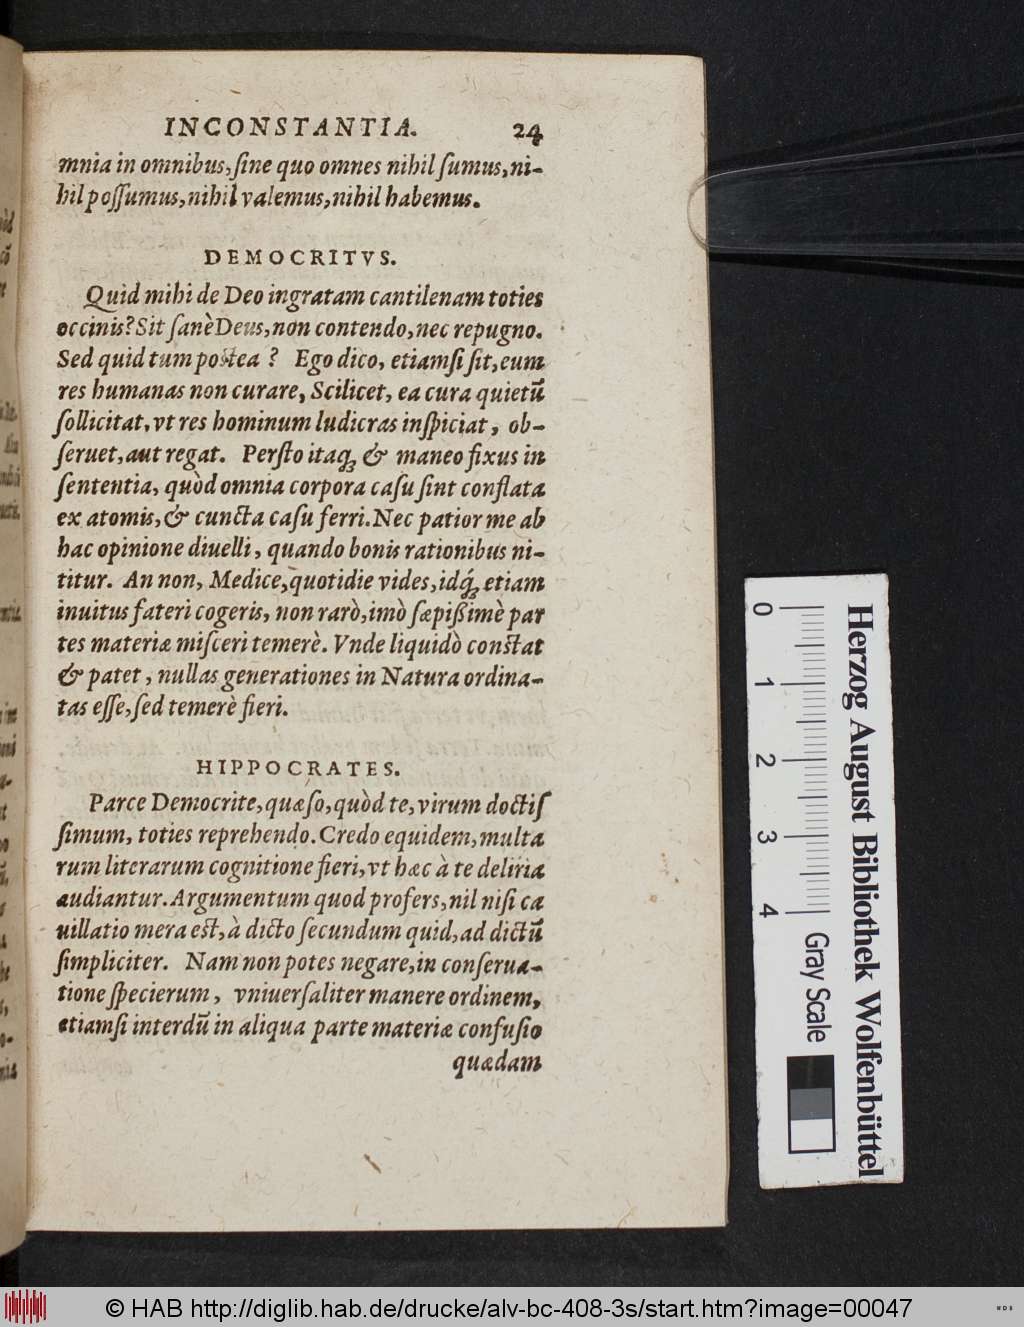 INCONSTANTIA. 24
mnia in omnibus, ſine quo omnes nihil ſumus, ni-
hil poſſumus, nihil valemus, nihil habemus.
DEMOCRITVS.
Quid mihi de Deo ingratam cantilenam toties
occinis? Sit ſanè Deus, non contendo, nec repugno.
Sed quid tum postea ? Ego dico, etiamſi ſit, eum
res humanas non curare, Scilicet, ea cura quietū
ſollicitat, vt res hominum ludicras inſpiciat, ob-
ſeruet, aut regat. Perſto itaq́; & maneo fixus in
ſententia, quòd omnia corpora caſu ſint conflata
ex atomis, & cuncta caſu ferri. Nec patior me ab
hac opinione diuelli, quando bonis rationibus ni-
titur. An non, Medice, quotidie vides, idq́; etiam
inuitus fateri cogeris, non rarò, imò ſæpißimè par
tes materiæ miſceri temerè. Vnde liquidò constat
& patet, nullas generationes in Natura ordina-
tas eſſe, ſed temerè fieri.
HIPPOCRATES.
Parce Democrite, quæſo, quòd te, virum doctiſ
ſimum, toties reprehendo. Credo equidem, multa
rum literarum cognitione fieri, vt hæc à te deliria
audiantur. Argumentum quod profers, nil niſi ca
uillatio mera est, à dicto ſecundum quid, ad dictū
ſimpliciter. Nam non potes negare, in conſerua-
tione ſpecierum, vniuerſaliter manere ordinem,
etiamſi interdū in aliqua parte materiæ confuſio
quædam
0 1 2 3 4 Gray Scale
Herzog August Bibliothek Wolfenbüttel
© HAB http://diglib.hab.de/drucke/alv-bc-408-3s/start.htm?image=00047